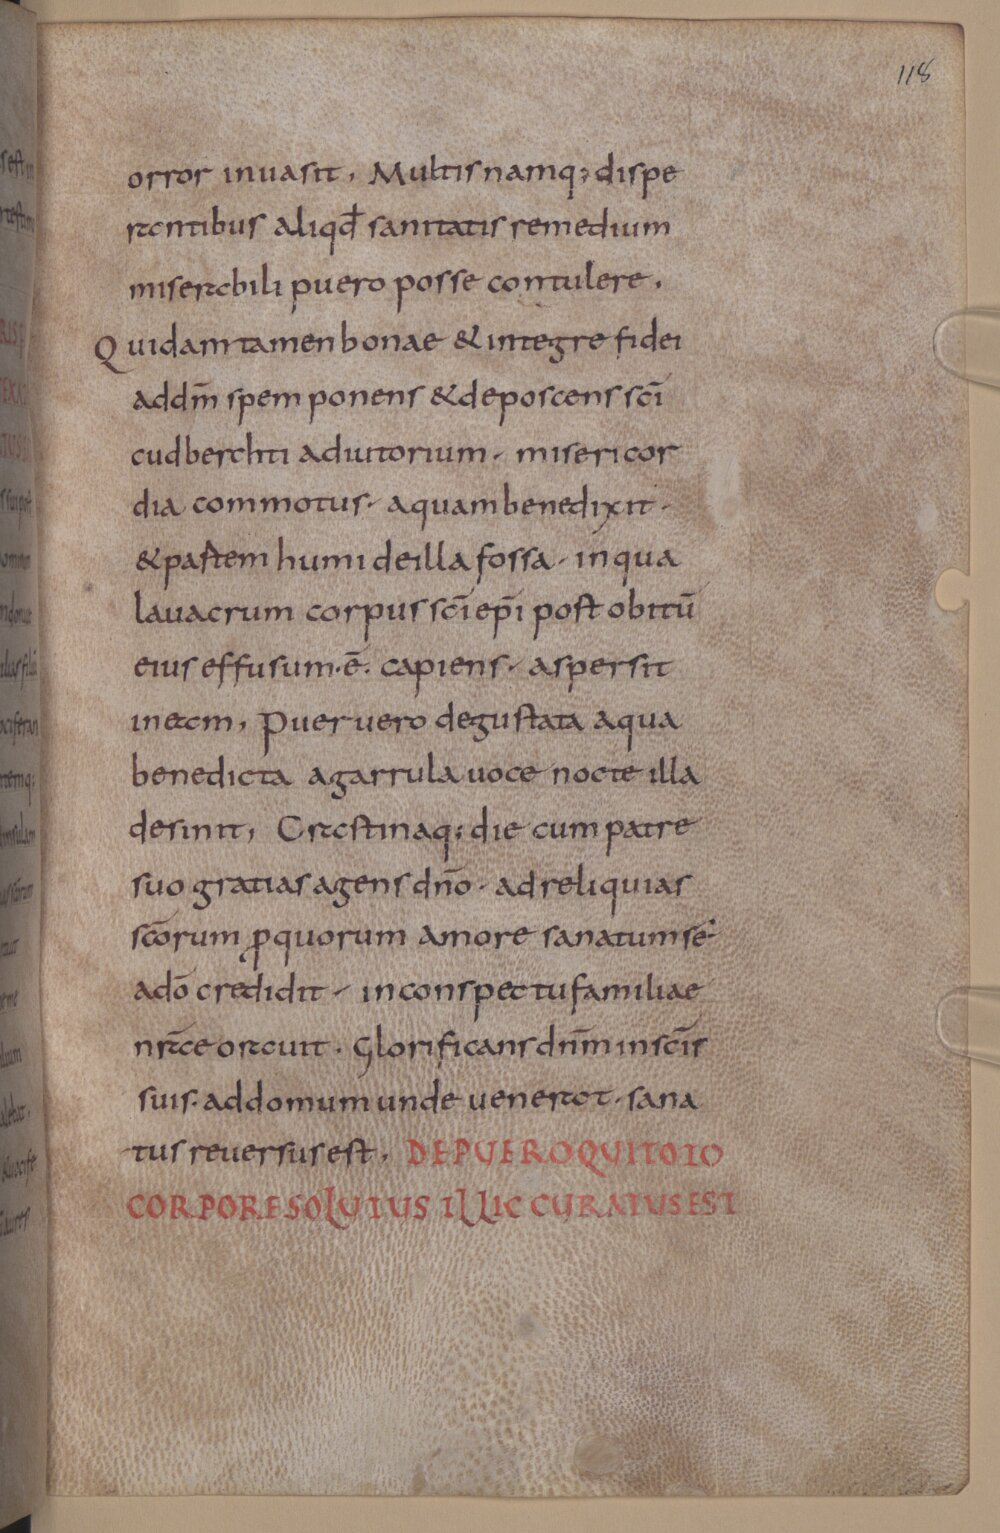 118
orror inuasit, Multis namq; dispe
rantibus aliqđ sanitatis remedium
miserabili puero posse contulere.
Quidam tamen bonae & integre fidei
ad dm̄ spem ponens & deposcens sc̄i
cudberchti adiutorium. misericor
dia commotus. aquam benedixit.
& partem humi de illa fossa. in qua
lauacrum corpus sc̄i ep̄i post obitū
eius effusum. ē. capiens. aspersit
in eam, Puer uero degustata aqua
benedicta a garrula uoce nocte illa
desinit, Crastinaq; die cum patre
suo gratias agens dn̄o. ad reliquias
sc̄orum ꝓ quorum amore sanatum se
a dō credidit. in conspectu familiae
nr̄ae orauit. Glorificans dn̄m in sc̄is
suis. ad domum unde venerat. sana
tus reuersus est. DE PUERO QUI TOTO
CORPORE SOLUTUS ILLIC CURATUS EST